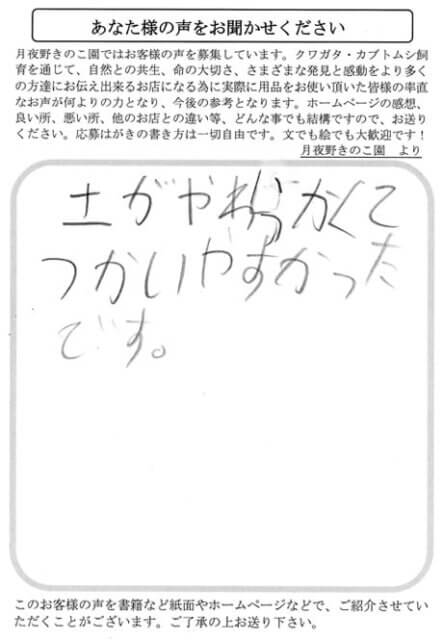 あなた様の声をお聞かせください
月夜野きのこ園ではお客様の声を募集しています。クワガタ・カブトムシ飼
育を通じて、自然との共生、命の大切さ、さまざまな発見と感動をより多く
の方達にお伝え出来るお店になる為に実際に用品をお使い頂いた皆様の率直
なお声が何よりの力となり、今後の参考となります。ホームページの感想、
良い所、悪い所、他のお店との違い等、どんな事でも結構ですので、お送り
ください。応募はがきの書き方は一切自由です。文でも絵でも大歓迎です！
月夜野きのこ園　より
土がやわらかくて
つかいやすかった
です。
このお客様の声を書籍など紙面やホームページなどで、ご紹介させてい
ただくことがございます。ご了承の上お送り下さい。